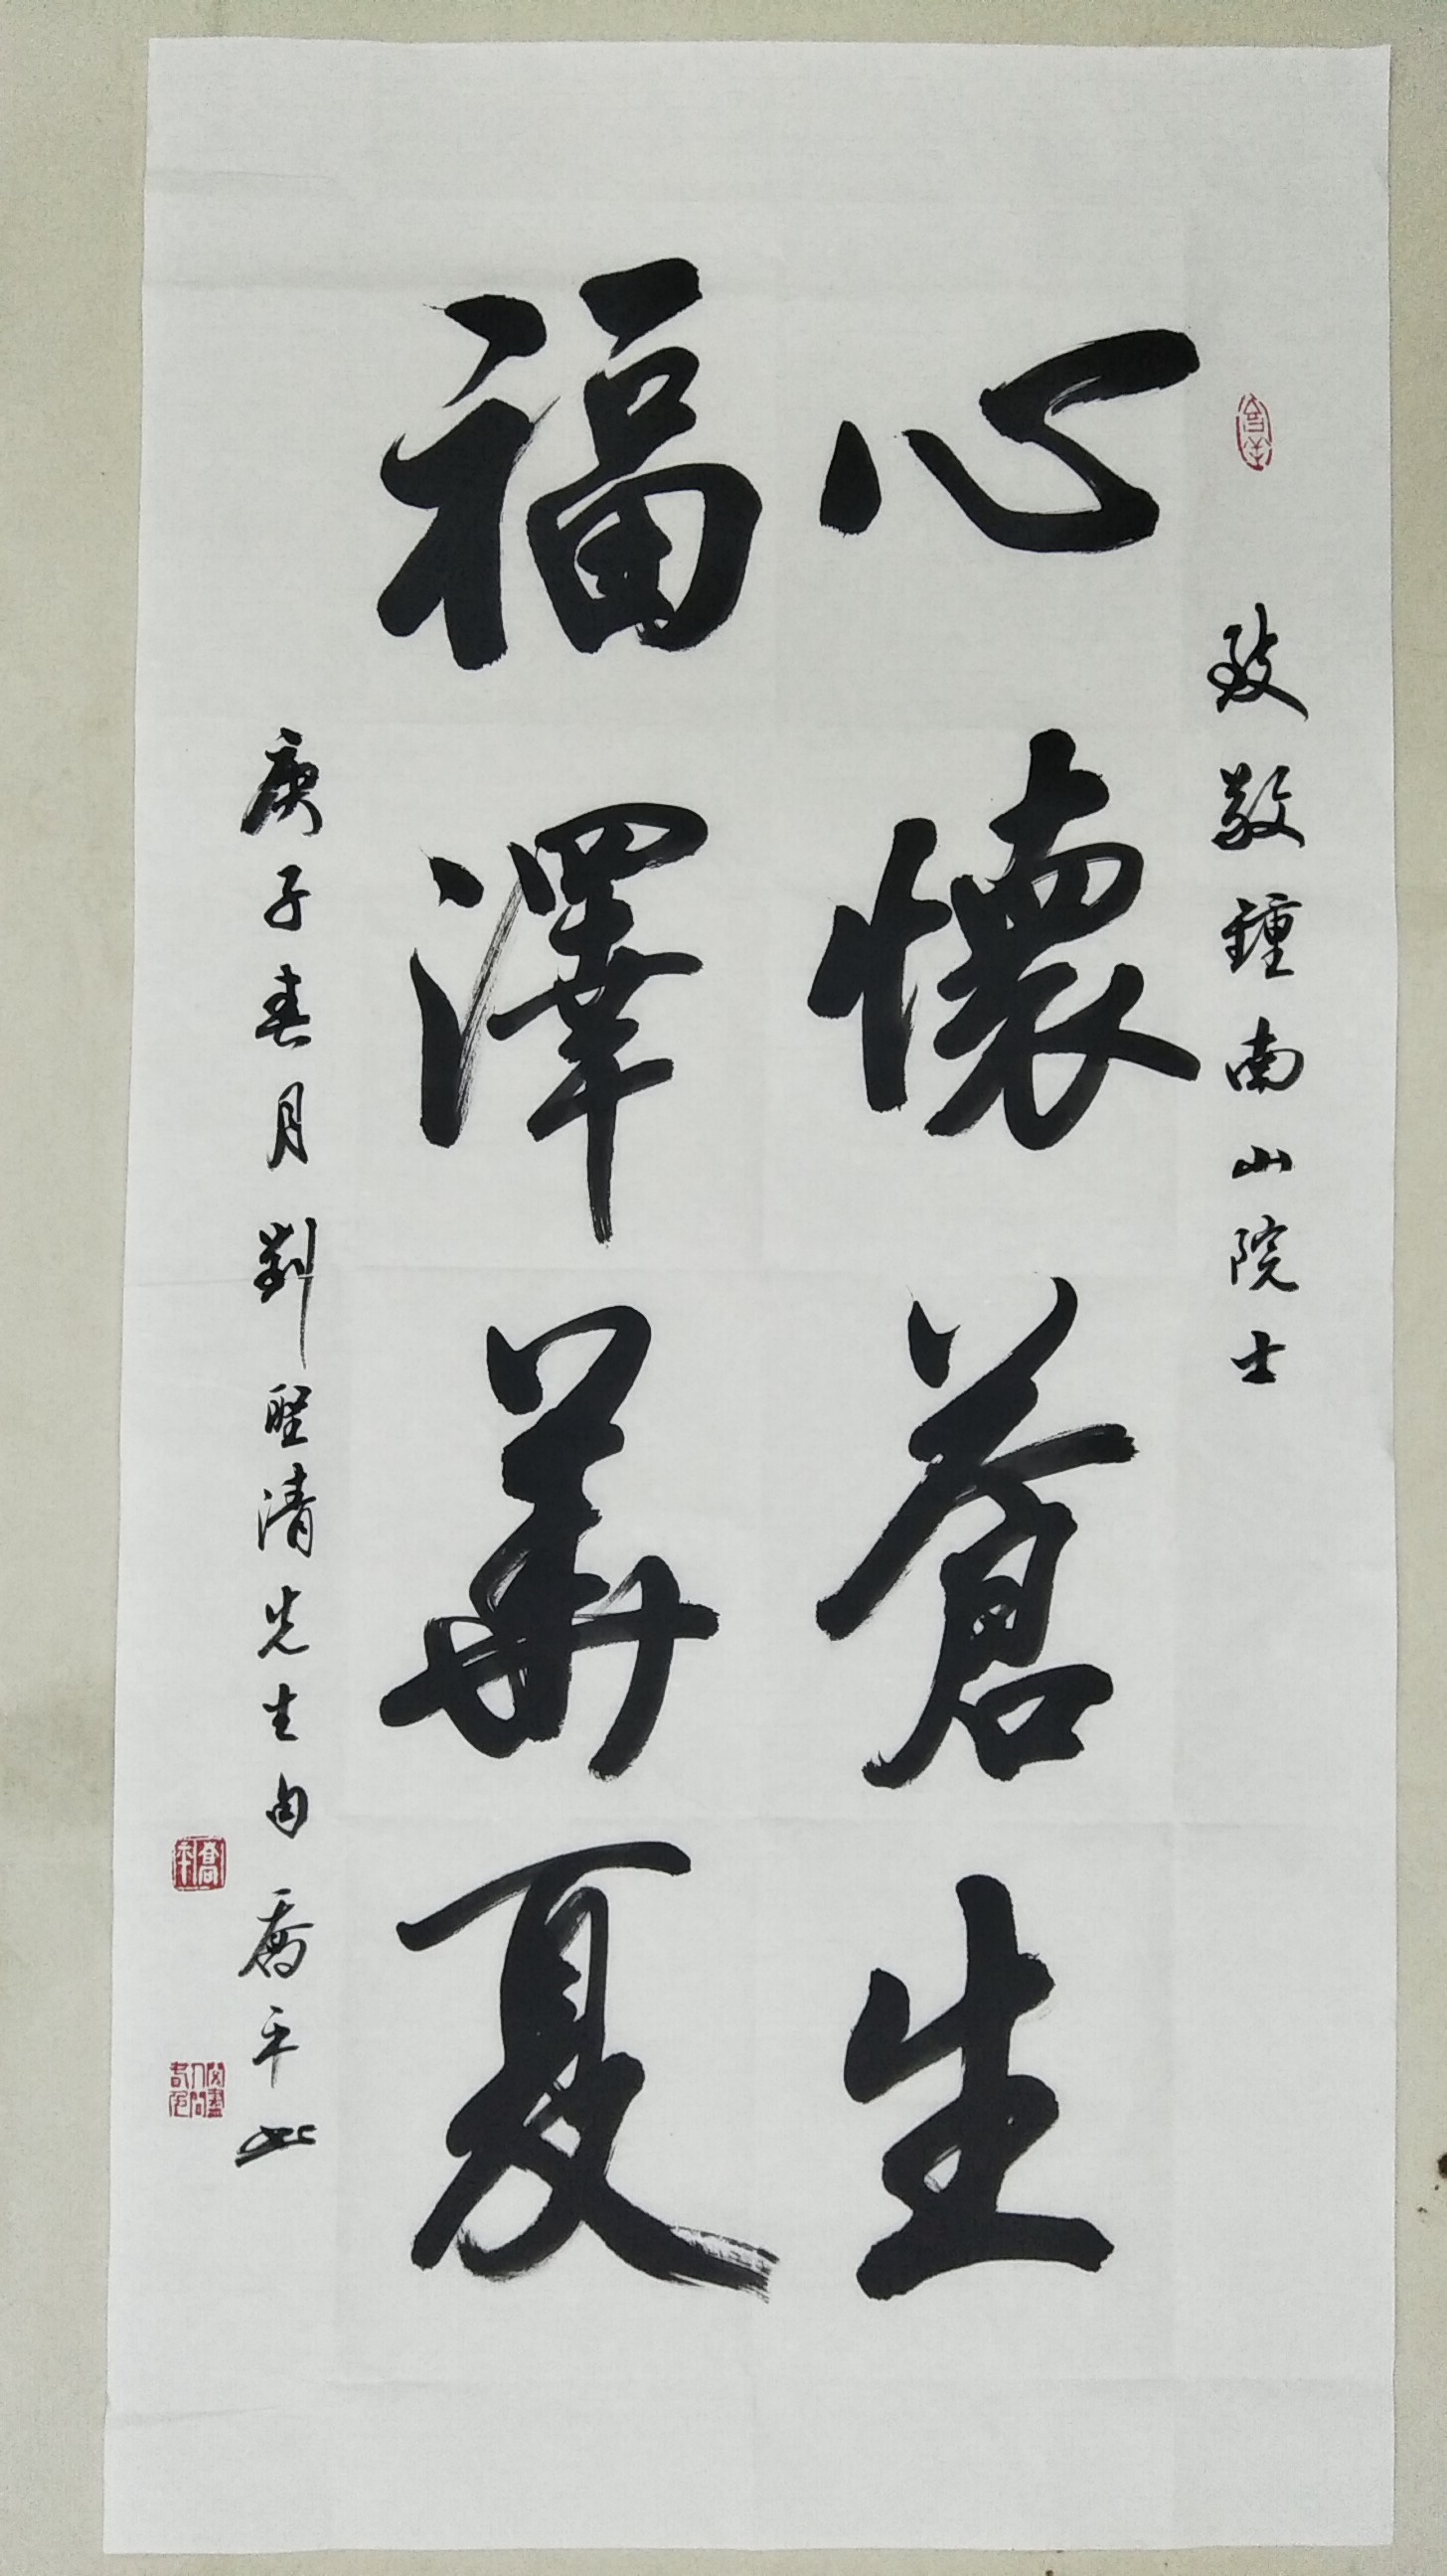 致敬鍾南山院士
心懷蒼生
福澤華夏
庚子春月劉聖清先生句喬平書